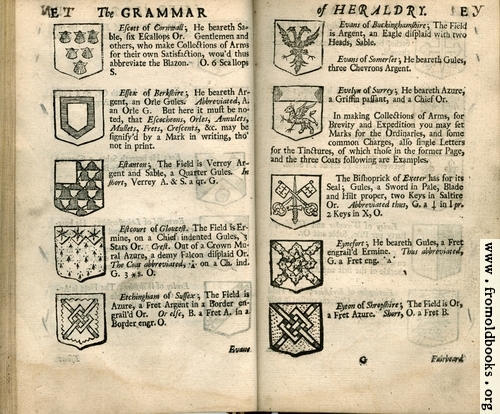 ET The GRAMMAR
Escott of Cornwall; He beareth Sa-
ble, six Escallops Or. Gentlemen and
others, who make Collections of Arms
for their own Satisfaction, wou'd thus
abbreviate the Blazon. O. 6 Scallops
S.
Essex of Berkshire; He beareth Ar-
gent, an Orle Gules. Abbreviated, A.
an Orle G. But here it must be no-
ted, that Escocheons, Orles, Annulets,
Mullets, Frets, Crescents, &c. may be
signify'd by a Mark in writing, tho'
not in print.
Estanton; The Field is Verrey Ar-
gent and Sable, a Quarter Gules. In
short, Verrey A. & S. a qr. G.
Estcours of Gloucest. The Field is Er-
mine, on a Chief indented Gules, 3
Stars Or. Crest. Out of a Crown Mu-
ral Azure, a demy Falcon display'd Or.
The Coat abbreviated, on a Ch. ind.
G. 3 O.
Etchingham of Sussex; The Field is
Azure, a Fret Argent in a Border en-
grail'd Or. Or else, B. a Fret A. in a
Border engr. O.
Evans
of HERALDRY. EY
Evans of Buckinghamshire; The Field
is Argent, an Eagle display'd with two
Heads, Sable.
Evans of Somerset; He beareth Gules,
three Chevrons Argent.
Evelyn of Surrey; He beareth Azure,
a Griffin passant, and a Chief Or.
In making Collections of Arms, for
Brevity and Expedition you may set
Marks for the Ordinaries, and some
common Charges, also single Letters
for the Tinctures, of which those in the former Page,
and the three Coats following are Examples.
The Bishoprick of Exeter has for its
Seal; Gules, a Sword in Pale, Blade
and Hilt proper, two Keys in Saltire
Or. Abbreviated thus, G. a in pr.
2 Keys in X, O.
Eynefort; He beareth Gules, a Fret
engrail'd Ermine. Thus abbreviated,
G. a Fret eng.
Eyton of Shropshire; The Field is Or,
a Fret Azure. Short, O. a Fret B.
G Fairbeard
www.fromoldbooks.org